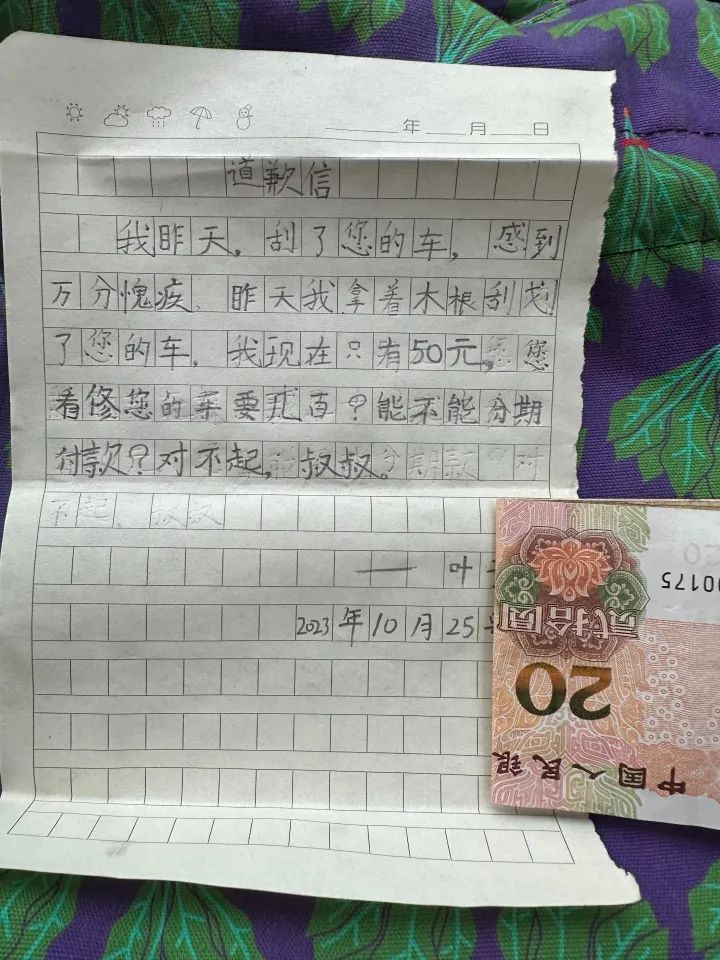 年 月 日
道歉信
我昨天,刮了您的车,感到
万分愧疚。昨天我拿着木根刮划
了您的车。我现在只有50元,您
看修您的车要 百?能不能分期
付款?对不起,叔叔。分期款?对
不起,叔叔
——叶
2023年10月25
00175
贰拾圆
20
中国人民银